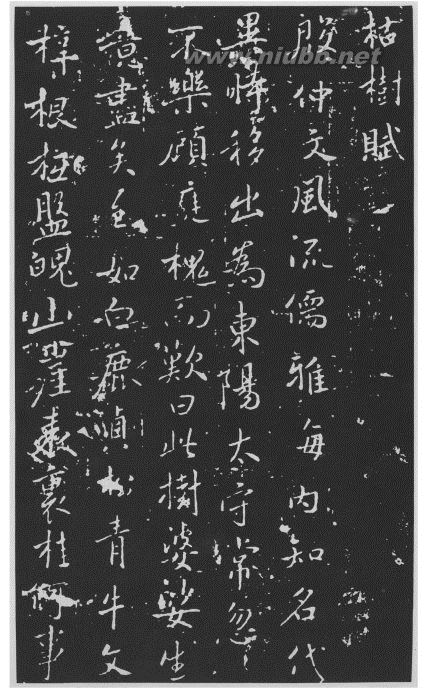 枯樹賦
殷仲文風流儒雅每內知名代
異時移出為東陽大守常忽々
不樂顧庭槐而歎曰此樹婆娑生
意盡矣至如白鹿貞松青牛文
梓根柢盤魄山崖表裏桂何事
www.niubb.net